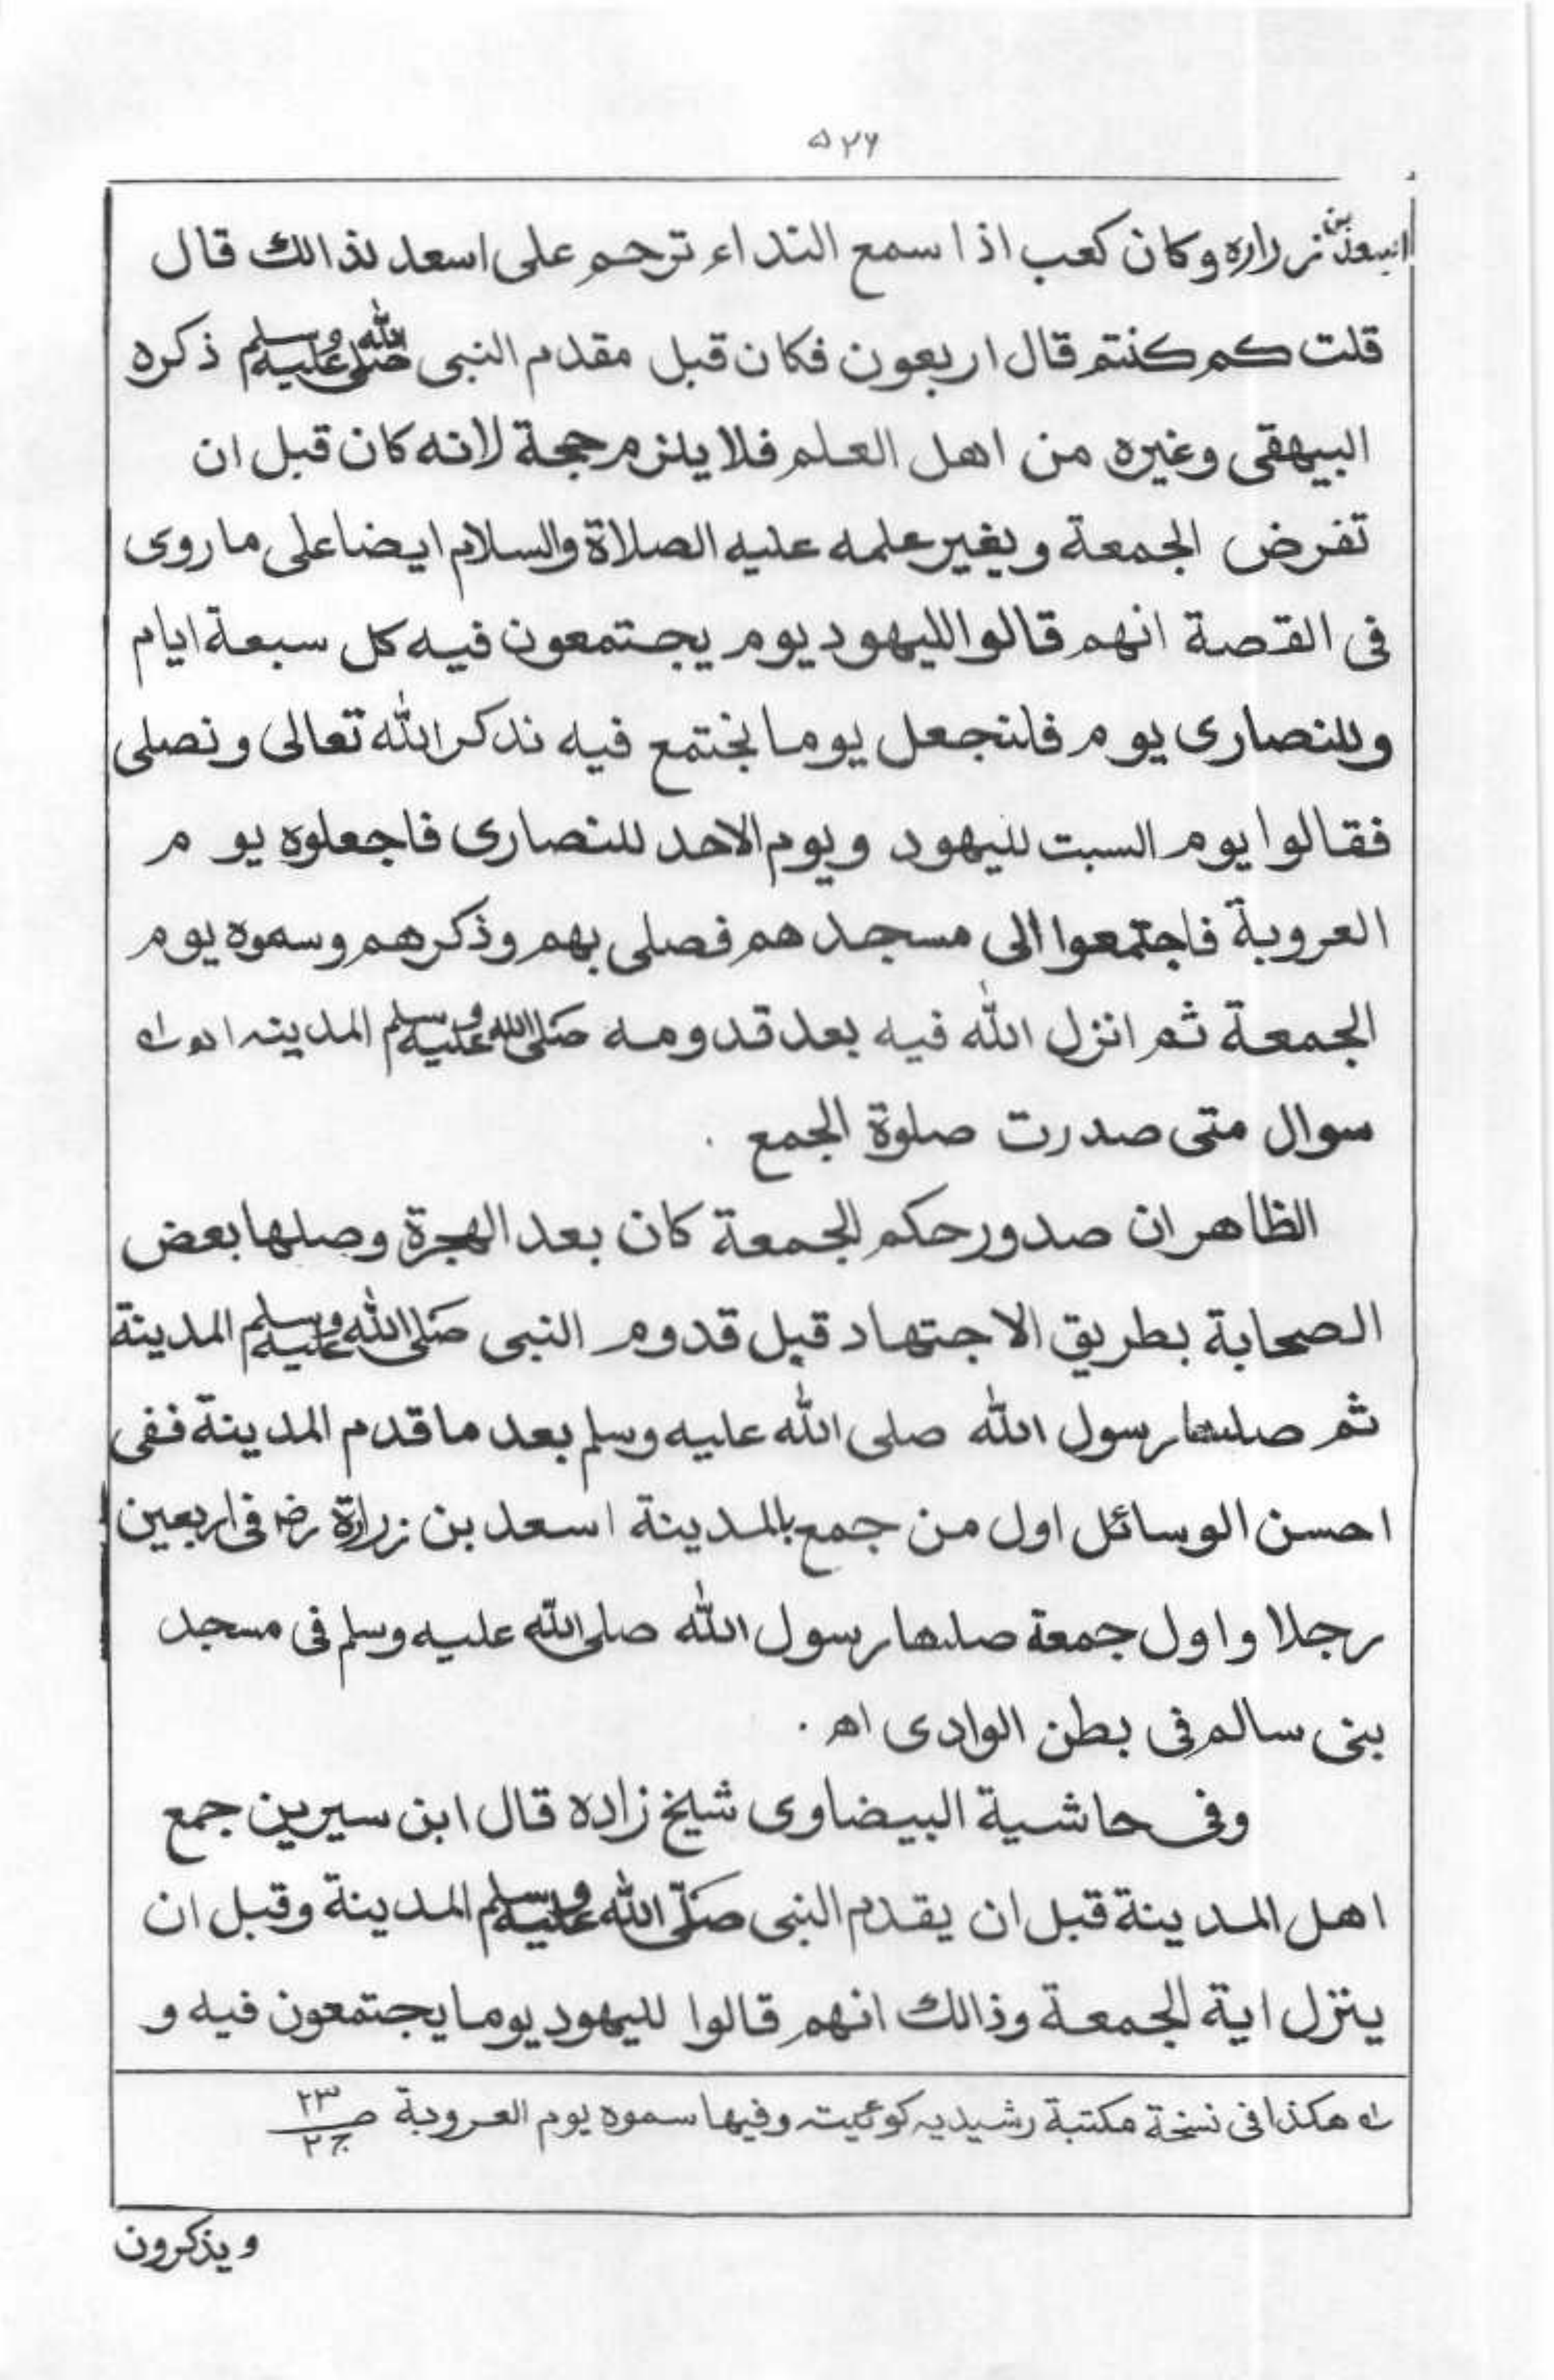 ۵۲۶
اسعد بن زراره وكان كعب اذا سمع النداء ترحم على اسعد لذالك قال
قلت كم كنتم قال اربعون فكان قبل مقدم النبى صلى الله عليه وسلم ذكره
البيهقى وغيره من اهل العلم فلا يلزم حجة لانه كان قبل ان
تفرض الجمعة وبغير علمه عليه الصلاة والسلام ايضا على ما روى
فى القصة انهم قالوا لليهود يوم يجتمعون فيه كل سبعة ايام
وللنصارى يوم فلنجعل يوما نجتمع فيه نذكر الله تعالى ونصلى
فقالوا يوم السبت لليهود ويوم الاحد للنصارى فاجعلوه يوم
العروبة فاجتمعوا الى مسجدهم فصلى بهم وذكرهم وسموه يوم
الجمعة ثم انزل الله فيه بعد قدومه صلى الله عليه وسلم المدينه
سوال متى صدرت صلوة الجمع .
الظاهر ان صدور حكم الجمعة كان بعد الهجرة وصلها بعض
الصحابة بطريق الاجتهاد قبل قدوم النبى صلى الله عليه وسلم المدينة
ثم صلها رسول الله صلى الله عليه وسلم بعد ما قدم المدينة ففى
احسن الوسائل اول من جمع بالمدينة اسعد بن زرارة رضـ فى اربعين
رجلا واول جمعة صلها رسول الله صلى الله عليه وسلم فى مسجد
بنى سالم فى بطن الوادى اهـ .
وفى حاشية البيضاوى شيخ زاده قال ابن سيرين جمع
اهل المدينة قبل ان يقدم النبى صلى الله عليه وسلم المدينة وقبل ان
ينزل اية الجمعة وذالك انهم قالوا لليهود يوما يجتمعون فيه و
له هكذا فى نسخة مكتبة رشيديه كوئيته وفيها سموه يوم العروبة صـ ۲۳ ج ۲
ويذكرون